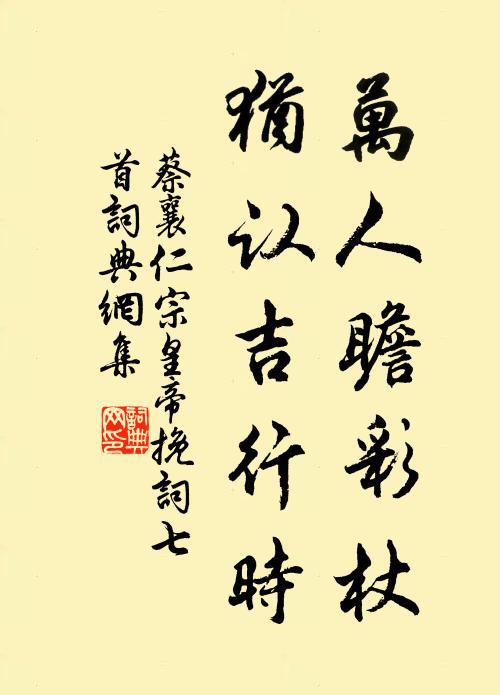 萬人瞻彩杖
猶认吉行時
蔡襄仁宗皇帝挽詞七
首詞典網集
詞典
网印